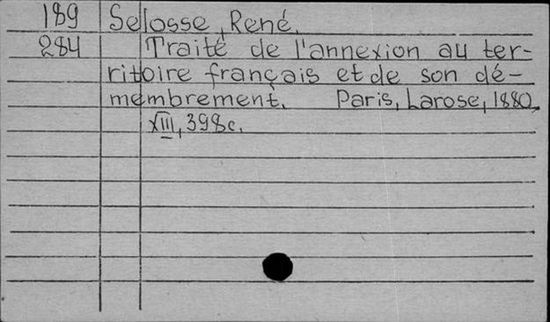 189 Selosse, René.
284 Traité de l'annexion au ter-
ritoire français et de son dé-
membrement. Paris, Larose, 1880.
XIII, 398c.